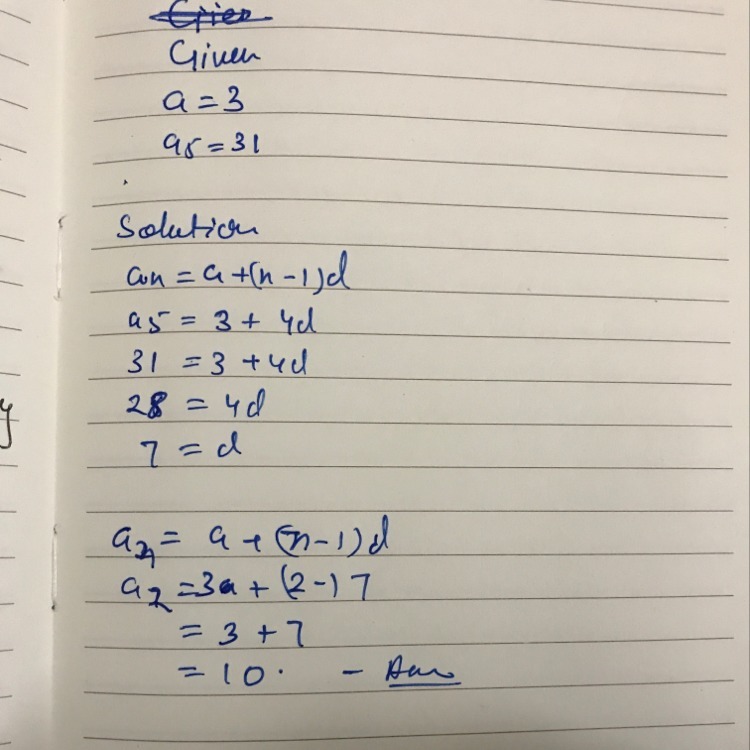 Given
a = 3
a5 = 31
Solution
an = a + (n - 1)d
a5 = 3 + 4d
31 = 3 + 4d
28 = 4d
7 = d
an = a + (n - 1)d
a2 = 3 + (2-)7
= 3 + 7
= 10. - Ans